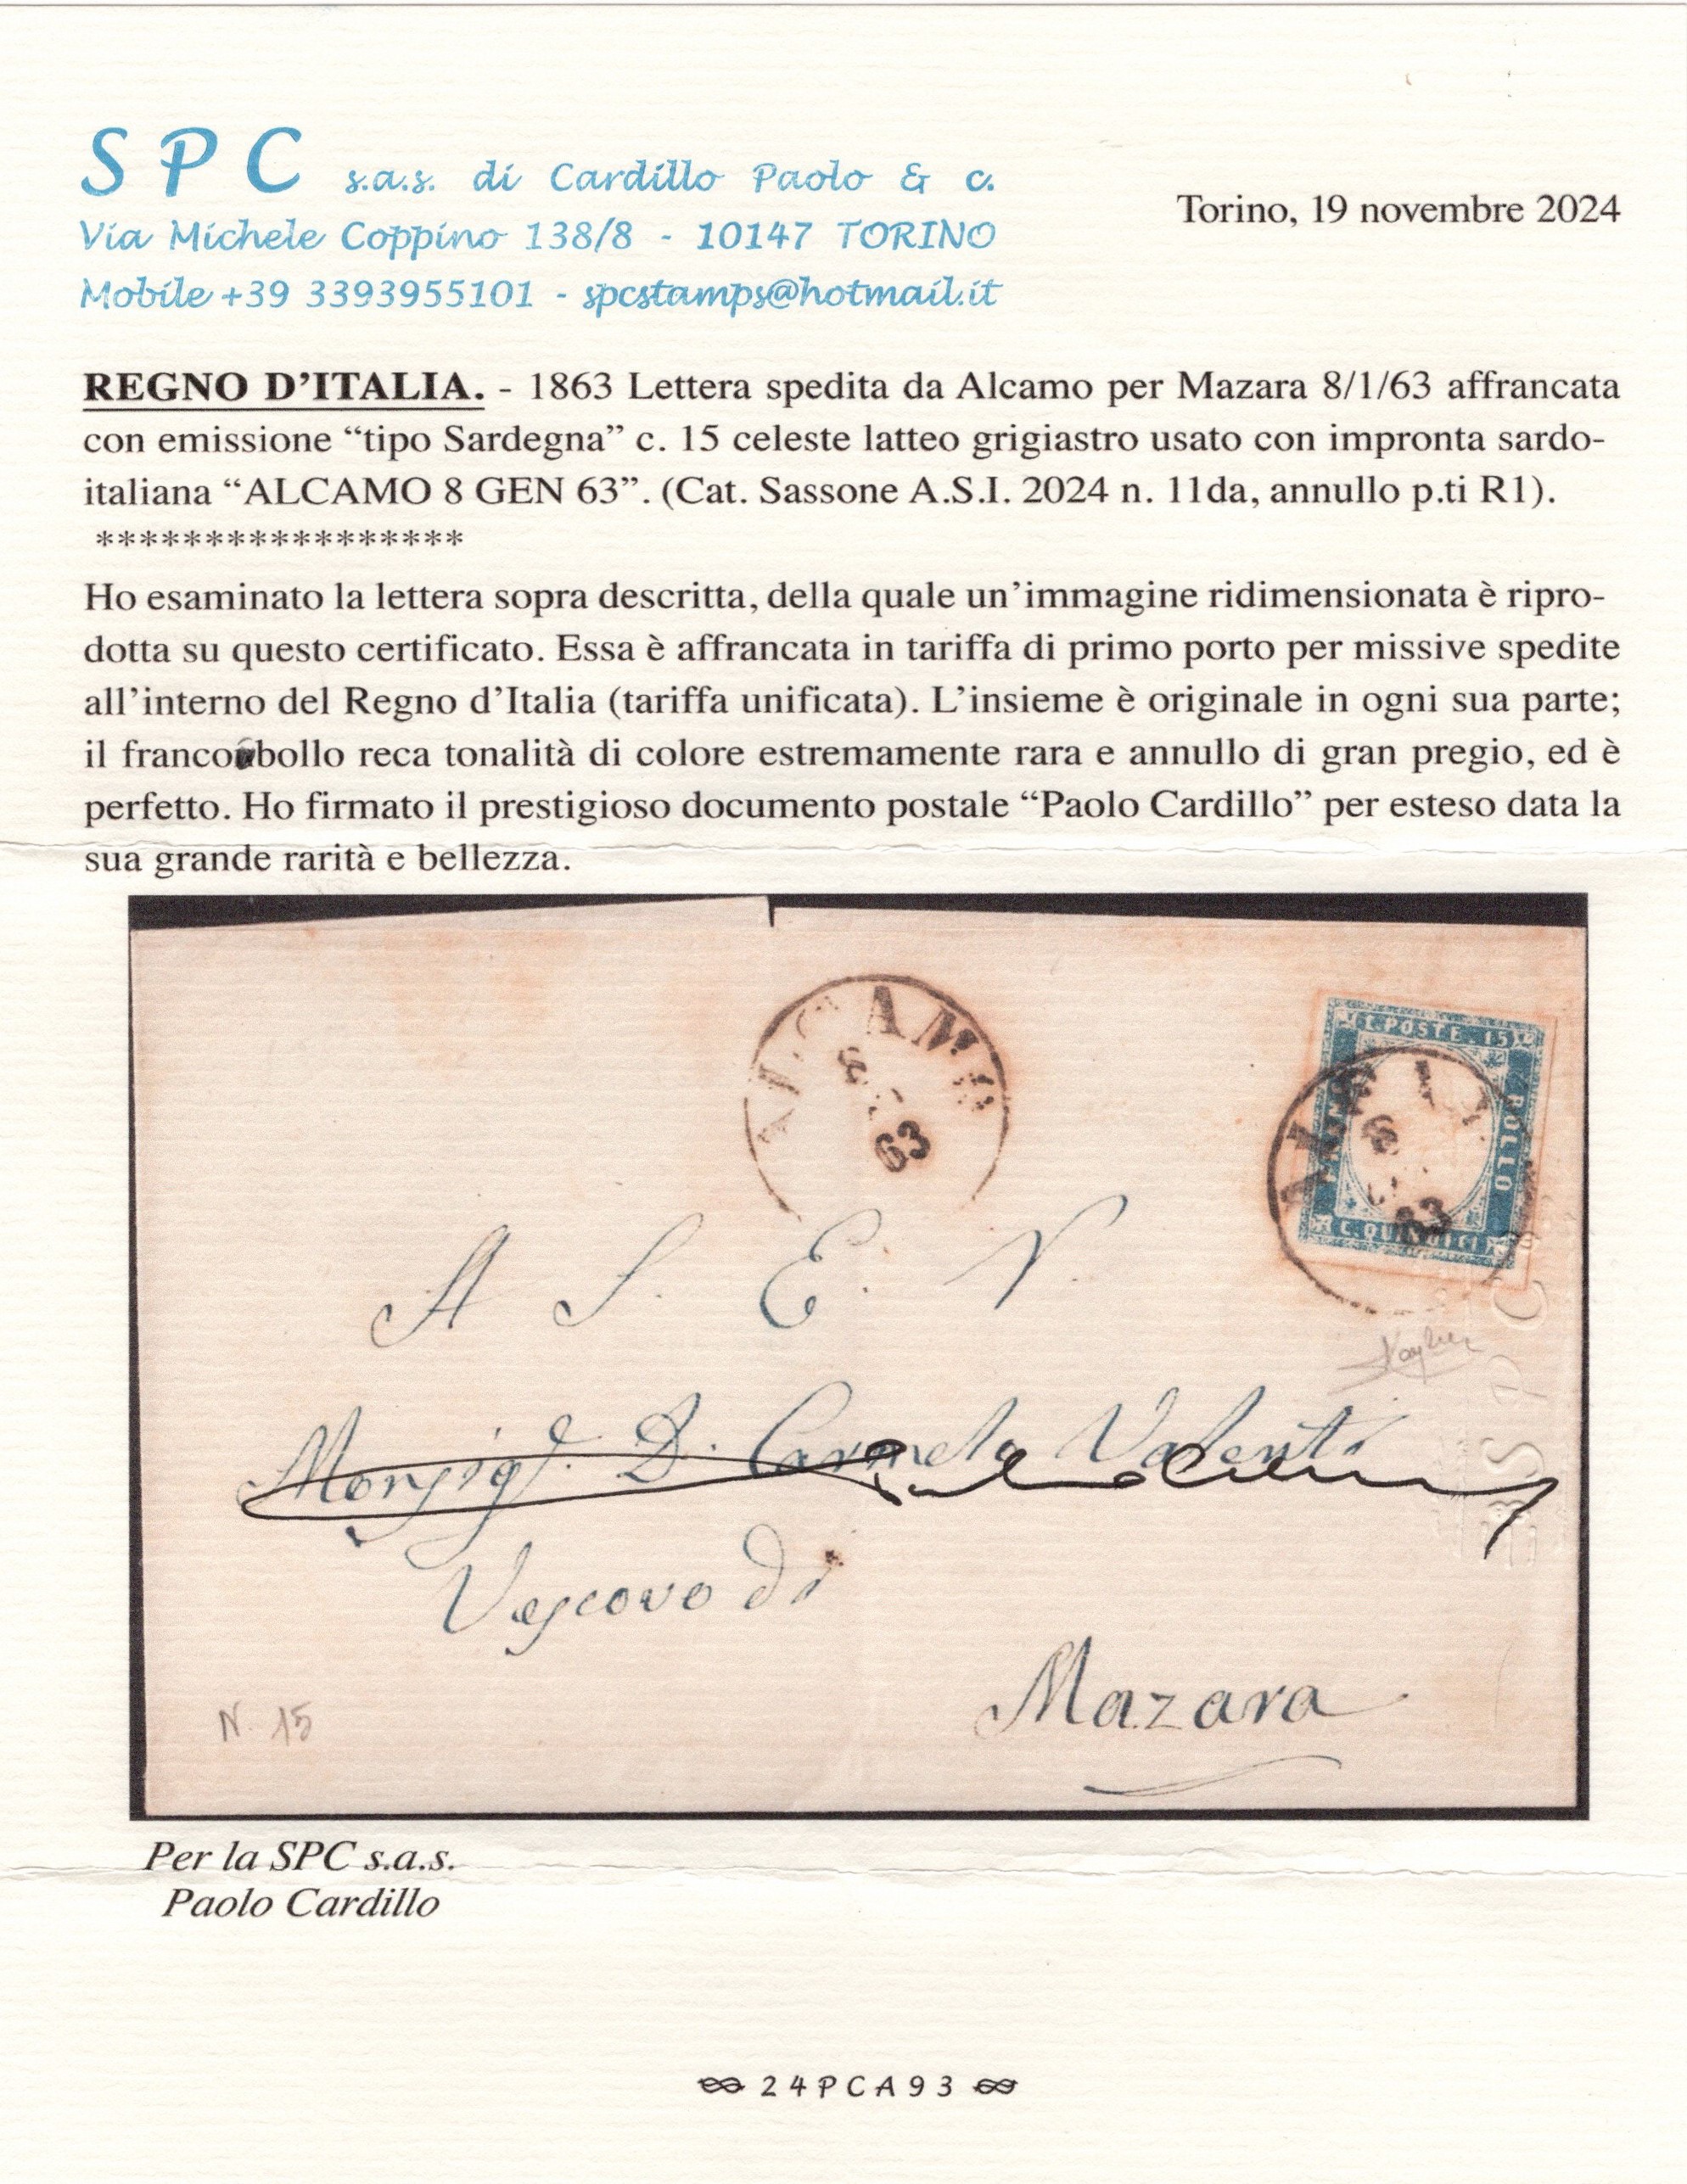 S P C s.a.s. di Cardillo Paolo & c.
Via Michele Coppino 138/8 - 10147 TORINO
Mobile +39 3393955101 - spcstamps@hotmail.it
Torino, 19 novembre 2024
REGNO D’ITALIA. - 1863 Lettera spedita da Alcamo per Mazara 8/1/63 affrancata
con emissione “tipo Sardegna” c. 15 celeste latteo grigiastro usato con impronta sardo-
italiana “ALCAMO 8 GEN 63”. (Cat. Sassone A.S.I. 2024 n. 11da, annullo p.ti R1).
*****************
Ho esaminato la lettera sopra descritta, della quale un’immagine ridimensionata è ripro-
dotta su questo certificato. Essa è affrancata in tariffa di primo porto per missive spedite
all’interno del Regno d’Italia (tariffa unificata). L’insieme è originale in ogni sua parte;
il francobollo reca tonalità di colore estremamente rara e annullo di gran pregio, ed è
perfetto. Ho firmato il prestigioso documento postale “Paolo Cardillo” per esteso data la
sua grande rarità e bellezza.
ALCAMO
8
63
POSTE. 15
BOLLO
C. QUINDICI
8
63
A S. E. R.
Monsigr. D. Carmelo Valenti
Vescovo di
Mazara
N. 15
SPC
Per la SPC s.a.s.
Paolo Cardillo
24PCA93